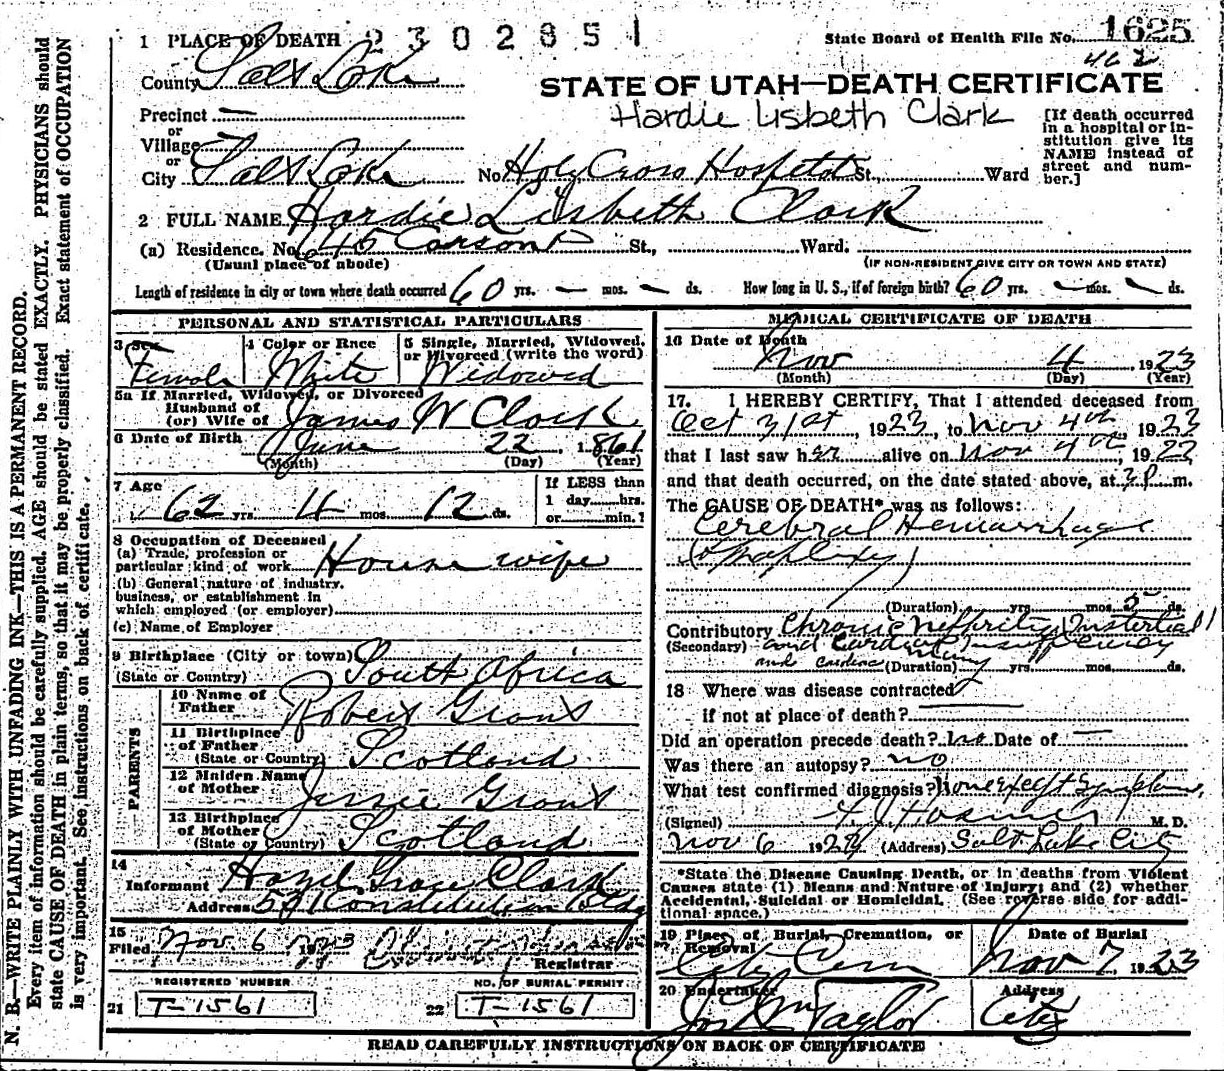 1 PLACE OF DEATH 2302851
State Board of Health File No. 1625
462
County Salt Lake
STATE OF UTAH—DEATH CERTIFICATE
Hardie Lisbeth Clark
Precinct —
or
Village
or
City Salt Lake No. Holy Cross Hospital St., Ward
[If death occurred
in a hospital or in-
stitution give its
NAME instead of
street and num-
ber.]
2 FULL NAME Hardie Lisbeth Clark
(a) Residence. No. 645 Carson St., Ward.
(Usual place of abode) (IF NON-RESIDENT GIVE CITY OR TOWN AND STATE)
Length of residence in city or town where death occurred 60 yrs. — mos. — ds. How long in U. S., if of foreign birth? 60 yrs. — mos. — ds.
PERSONAL AND STATISTICAL PARTICULARS
3 Sex 4 Color or Race 5 Single, Married, Widowed,
or Divorced (write the word)
Female White Widowed
5a If Married, Widowed, or Divorced
Husband of
(or) Wife of James W Clark
6 Date of Birth June 22, 1861
(Month) (Day) (Year)
7 Age 62 yrs. 4 mos. 12 ds.
If LESS than
1 day......hrs.
or......min. ?
8 Occupation of Deceased
(a) Trade, profession or
particular kind of work House wife
(b) General nature of industry,
business, or establishment in
which employed (or employer)
(c) Name of Employer
9 Birthplace (City or town)
(State or Country) South Africa
PARENTS
10 Name of
Father Robert Grant
11 Birthplace
of Father
(State or Country) Scotland
12 Maiden Name
of Mother Jessie Grant
13 Birthplace
of Mother
(State or Country) Scotland
14
Informant Hazel Grace Clark
Address Constitution Bldg
15
Filed Nov. 6 1923
Registrar
REGISTERED NUMBER
21 T-1561
NO. OF BURIAL PERMIT
22 T-1561
MEDICAL CERTIFICATE OF DEATH
16 Date of Death
Nov 4, 1923
(Month) (Day) (Year)
17. I HEREBY CERTIFY, That I attended deceased from
Oct 31st, 1923, to Nov 4th, 1923
that I last saw her alive on Nov 4th, 1923
and that death occurred, on the date stated above, at 3 P. m.
The CAUSE OF DEATH* was as follows:
Cerebral Hemorrhage
(Apoplexy)
(Duration) yrs. mos. 5 ds.
Contributory Chronic Nephritis, Interstitial
(Secondary) and Cardiac Insufficiency
and cardiac (Duration) yrs. mos. ds.
18 Where was disease contracted
if not at place of death?
Did an operation precede death? No Date of —
Was there an autopsy? no
What test confirmed diagnosis? None except Symptoms.
(Signed) M. D.
Nov 6 1923 (Address) Salt Lake City
*State the Disease Causing Death, or in deaths from Violent
Causes state (1) Means and Nature of Injury; and (2) whether
Accidental, Suicidal or Homicidal. (See reverse side for addi-
tional space.)
19 Place of Burial, Cremation, or
Removal
City Cem
Date of Burial
Nov 7 1923
20 Undertaker
Taylor
Address
City
READ CAREFULLY INSTRUCTIONS ON BACK OF CERTIFICATE
N. B.—WRITE PLAINLY WITH UNFADING INK—THIS IS A PERMANENT RECORD.
Every item of information should be carefully supplied. AGE should be stated EXACTLY. PHYSICIANS should
state CAUSE OF DEATH in plain terms, so that it may be properly classified. Exact statement of OCCUPATION
is very important. See instructions on back of certificate.